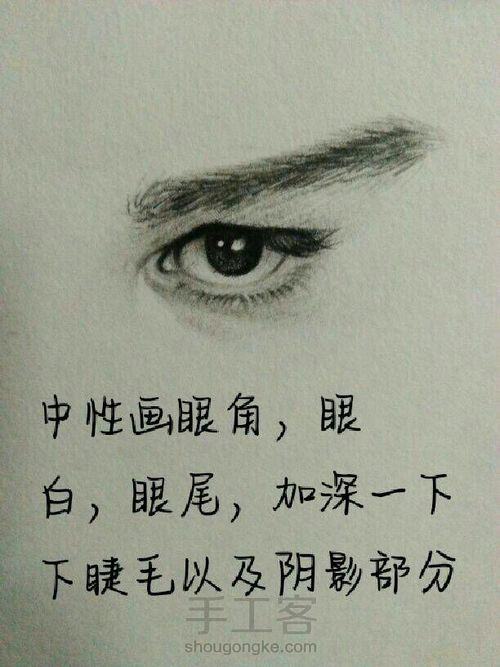 中性画眼角，眼
白，眼尾，加深一下
下睫毛以及阴影部分
手工客
shougongke.com